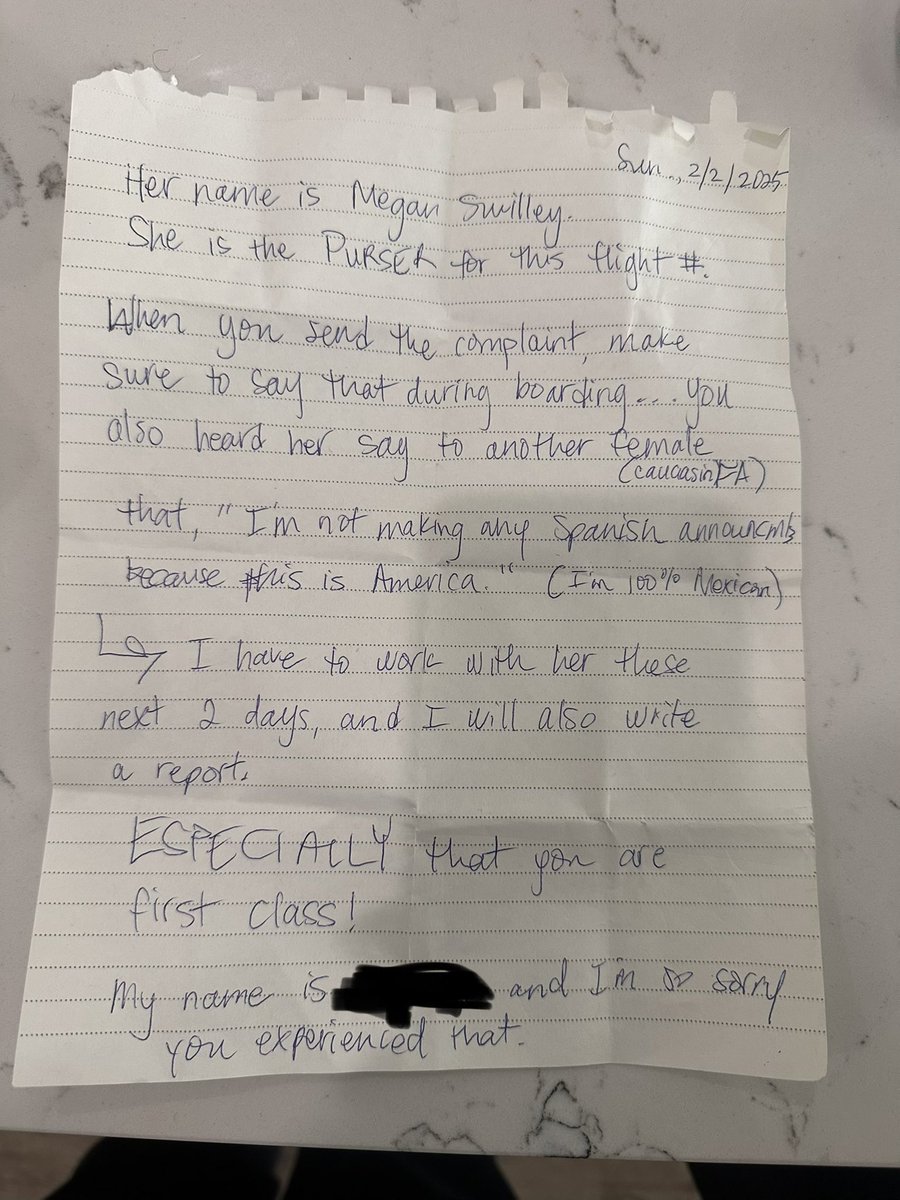 Sun., 2/2/2025
Her name is Megan Swilley.
She is the PURSER for this flight #.
When you send the complaint, make
sure to say that during boarding.... you
also heard her say to another female
(caucasin FA)
that, "I'm not making any Spanish announcmts
because this is America." (I'm 100% Mexican)
I have to work with her these
next 2 days, and I will also write
a report.
ESPECIALLY that you are
first class!
My name is and I'm so sorry
you experienced that.